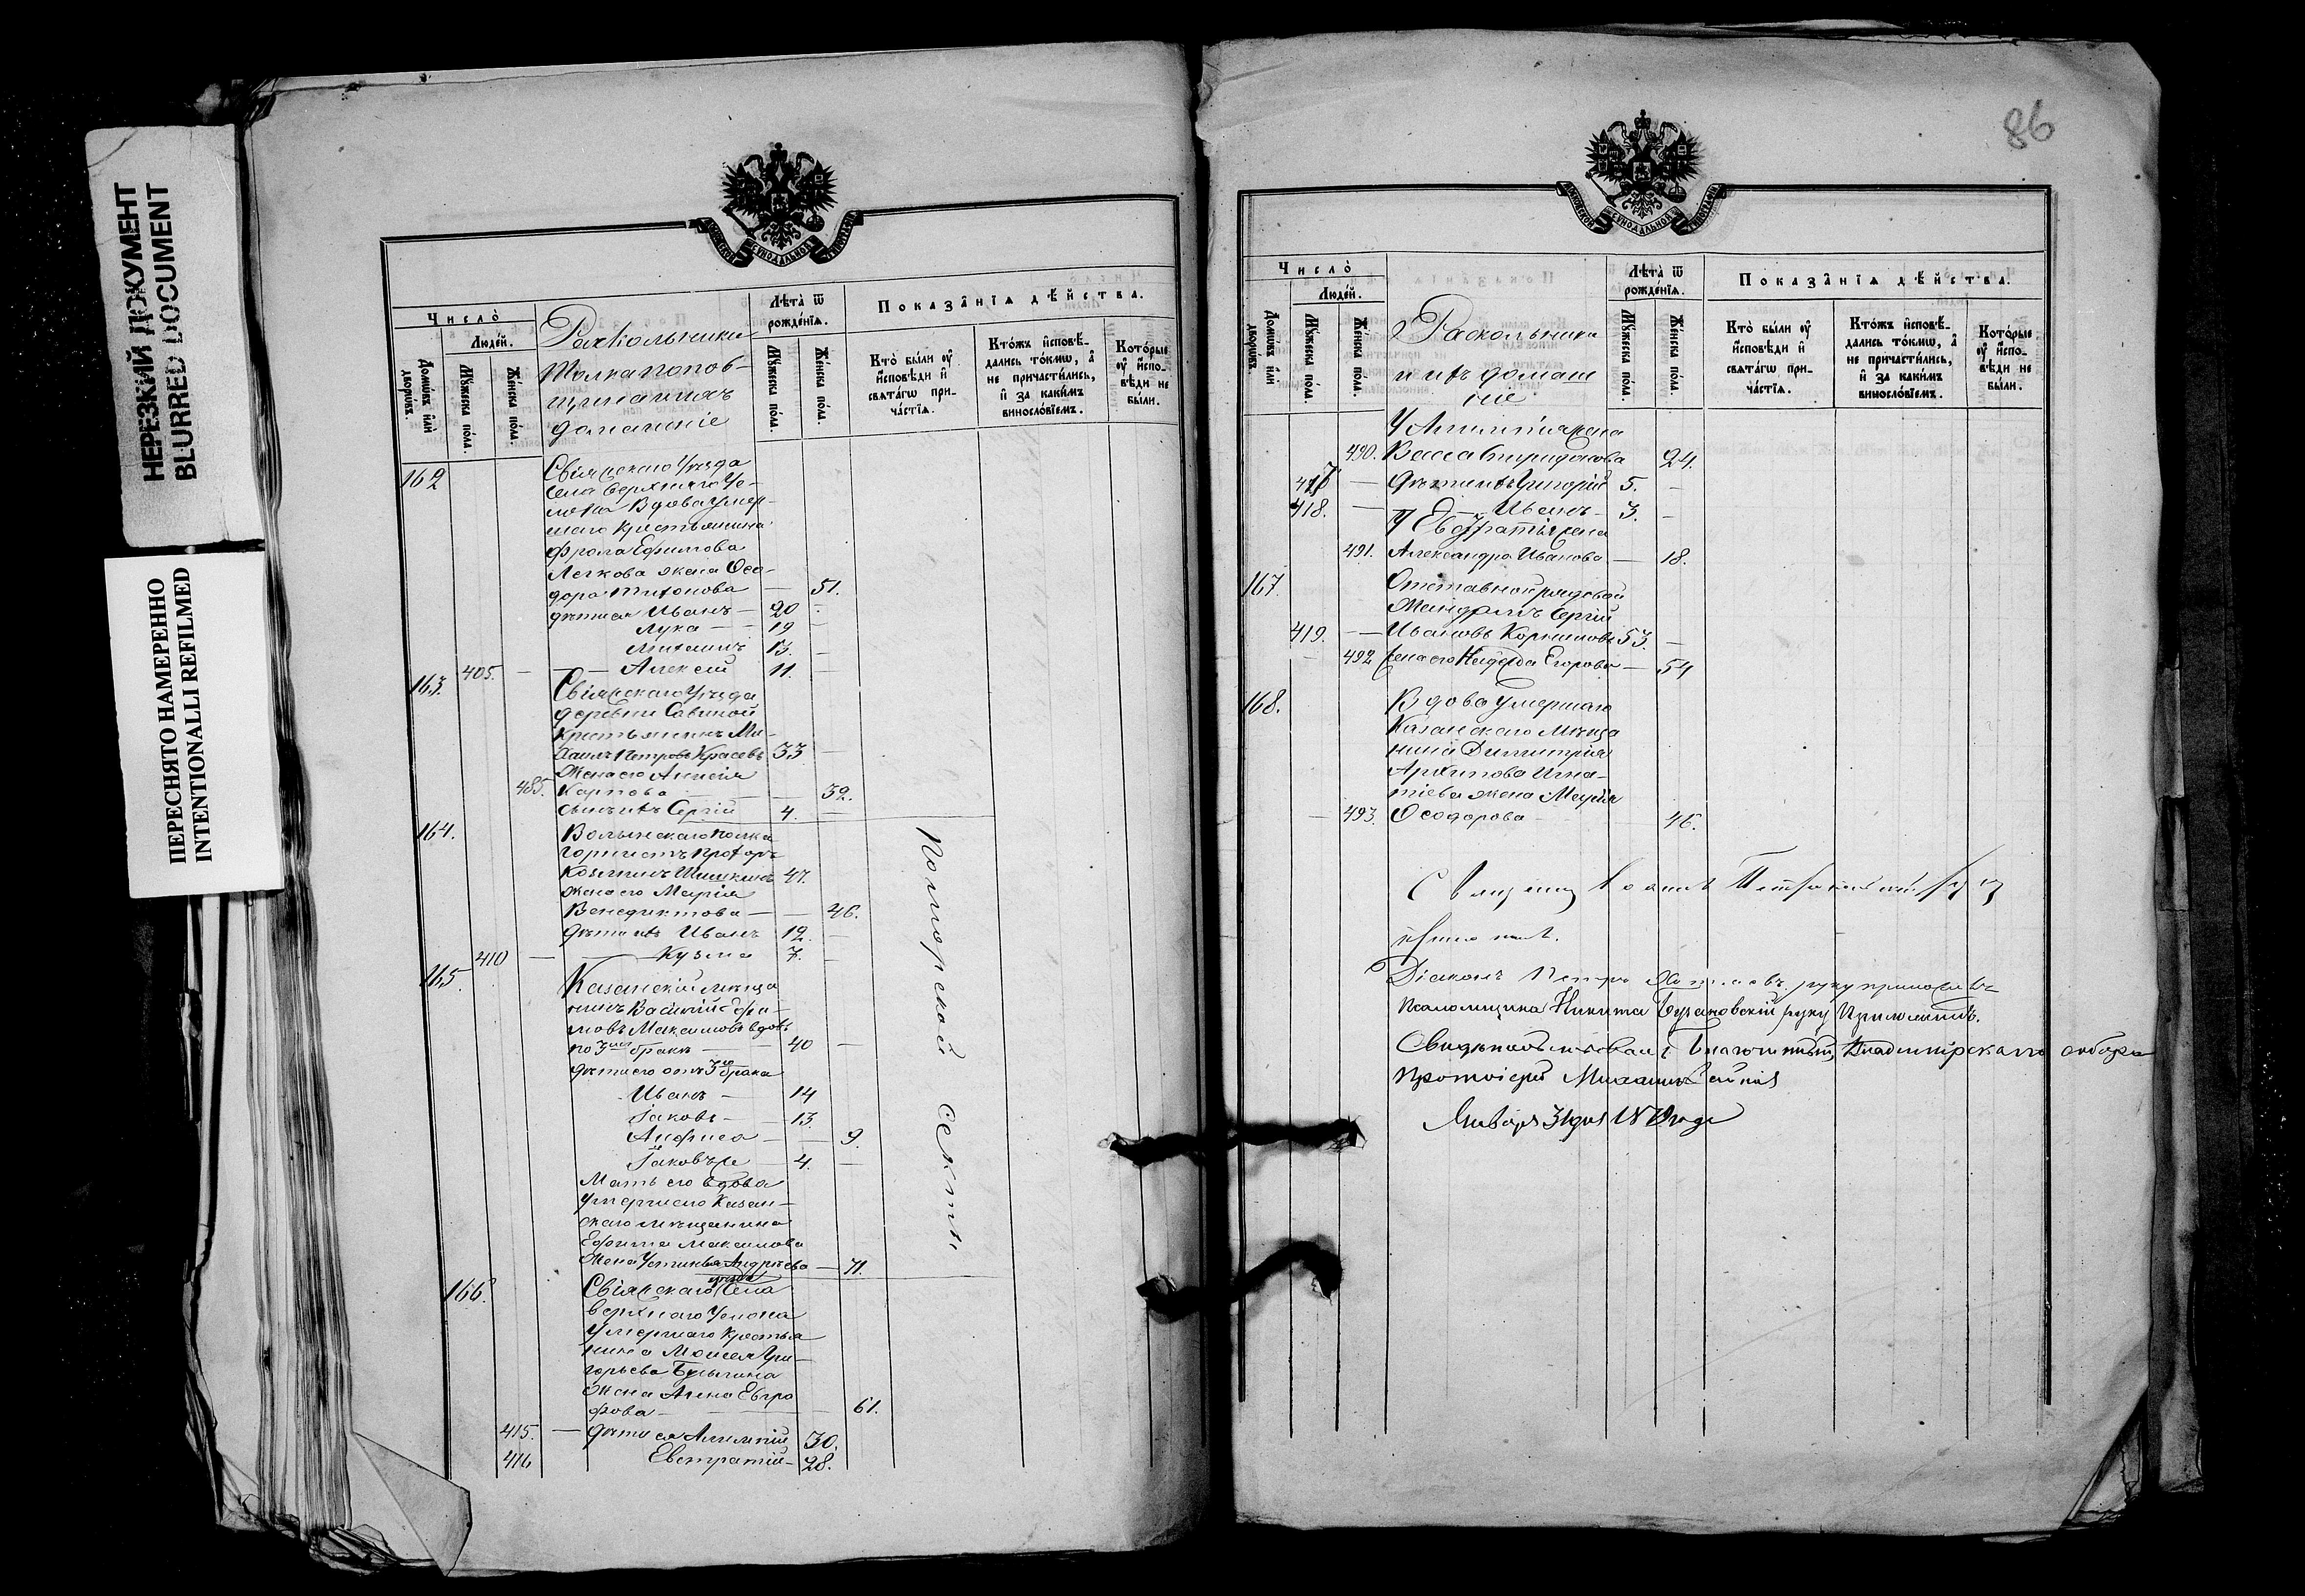 НЕРЕЗКИЙ ДОКУМЕНТ
BLURRED DOCUMENT
ПЕРЕСНЯТО НАМЕРЕННО
INTENTIONALLI REFILMED
Число̀
Людей.
Домѡвъ или дворѡвъ.
Мужеска пола.
Женска пола.
Раскольники
толка попов-
щинскихъ
домашніе
Лѣта ѿ рожденїѧ.
Мужеска пола.
Женска пола.
Показанїѧ дѣйства.
Кто были оу исповѣди и свѧтагѡ причастїѧ.
Ктожъ исповѣдались токмѡ, а не причастились, и за какимъ винословїемъ.
Которые оу исповѣди не были.
162
Свіяжскаго Уѣзда
села Верхняго Ус-
лона Вдова умер-
шаго крестьянина
Фрола Ефимова
Легкова жена Ѳео-
дора Тихонова — 51.
дѣти ея Иванъ — 20 —
Лука — 19 —
Михаилъ 13. —
405. — Алексій 11. —
163.
Свіяжскаго Уѣзда
деревни Савиной
Крестьянинъ Ми-
хаилъ Петровъ Красевъ 33 —
Жена его Анисія
485. Карпова — 32.
сынъ ихъ Сергій 4. —
164.
Волынскаго полка
горнистъ Прохоръ
Козминъ Шишкинъ 47.
жена его Марія
Венедиктова — 46.
дѣти ихъ Иванъ 12. —
410 — Кузма 7. —
165.
Казанскій мѣща
нинъ Василій Ефи-
мовъ Максимовъ вдовъ
по 3мъ бракѣ — 40 —
дѣти его отъ 3го брака
Иванъ — 14
Іаковъ — 13.
Анфиса — 9.
Іаковъ же 4. —
Мать его вдова
умершаго Казан-
скаго мѣщанина
Ефима Максимова
Жена Устинья Андреева — 71.
Поморской секты.
166.
Свіяжскаго уѣзда Села
верхняго Услона
умершаго крестья
нина Моисея Гри-
горьева Булыгина
жена Анна Евгра
фова — 61.
415. — дѣти ея Алимпій 30.
416 Евстратій — 28.
86
Число̀
Людей.
Домѡвъ или дворѡвъ.
Мужеска пола.
Женска пола.
Раскольники
и ихъ домаш
ніе
Лѣта ѿ рожденїѧ.
Мужеска пола.
Женска пола.
Показанїѧ дѣйства.
Кто были оу исповѣди и свѧтагѡ причастїѧ.
Ктожъ исповѣдались токмѡ, а не причастились, и за какимъ винословїемъ.
Которые оу исповѣди не были.
У Алимпія жена
490. Васса Спиридонова 24.
417 — Дѣти ихъ Григорій 5. —
418. — Иванъ — 3. —
У Евстратія жена
491. Александра Иванова — 18.
167.
Отставной рядовой
Жандармъ Сергій
419. — Ивановъ Корниловъ 53. —
492 жена его Надежда Егорова — 54
168.
Вдова умершаго
Казанскаго Мѣща
нина Димитрія
Архипова Игна-
тіева жена Марія
493. Ѳеодорова 46.
Священникъ Іоаннъ
Діаконъ Петръ руку приложилъ
Псаломщикъ Никита руку приложилъ.
Свидѣтельствовалъ Благочинный Владимірскаго собора
Протоіерей Михаилъ
Января 31 дня 1879 года